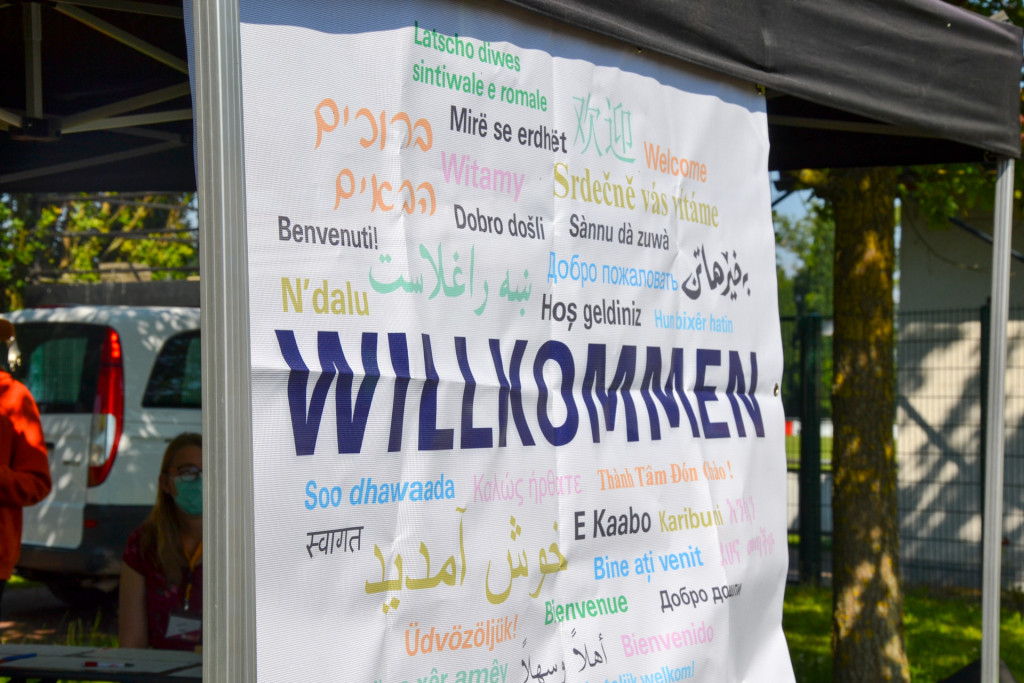 Latscho diwes
sintiwale e romale
ברוכים
הבאים
Mirë se erdhët
欢迎
Welcome
Witamy
Srdečně vás vítáme
Benvenuti!
Dobro došli
Sànnu dà zuwà
ښه راغلاست
Добро пожаловать
بەخێرهاتن
N'dalu
Hoş geldiniz
Hun bixêr hatin
WILLKOMMEN
Soo dhawaada
Καλώς ήρθατε
Thành Tâm Đón Chào !
स्वागत
خوش آمدید
E Kaabo
Karibuni
Bine ați venit
Üdvözöljük!
Bienvenue
Добро дошли
xêr amêy
أهلاً وسهلاً
Bienvenido
welkom!